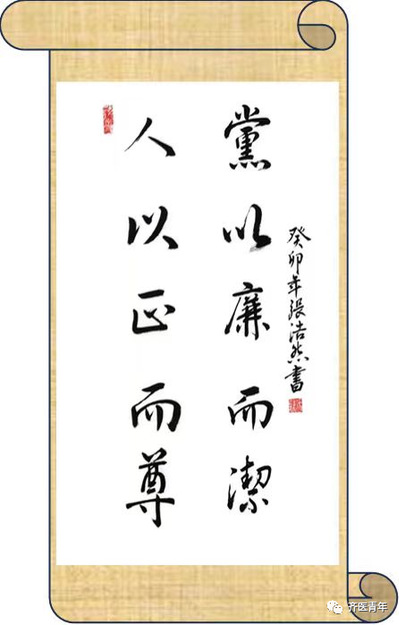 人以正而尊
黨以廉而潔
癸卯年張浩然書
齐医青年